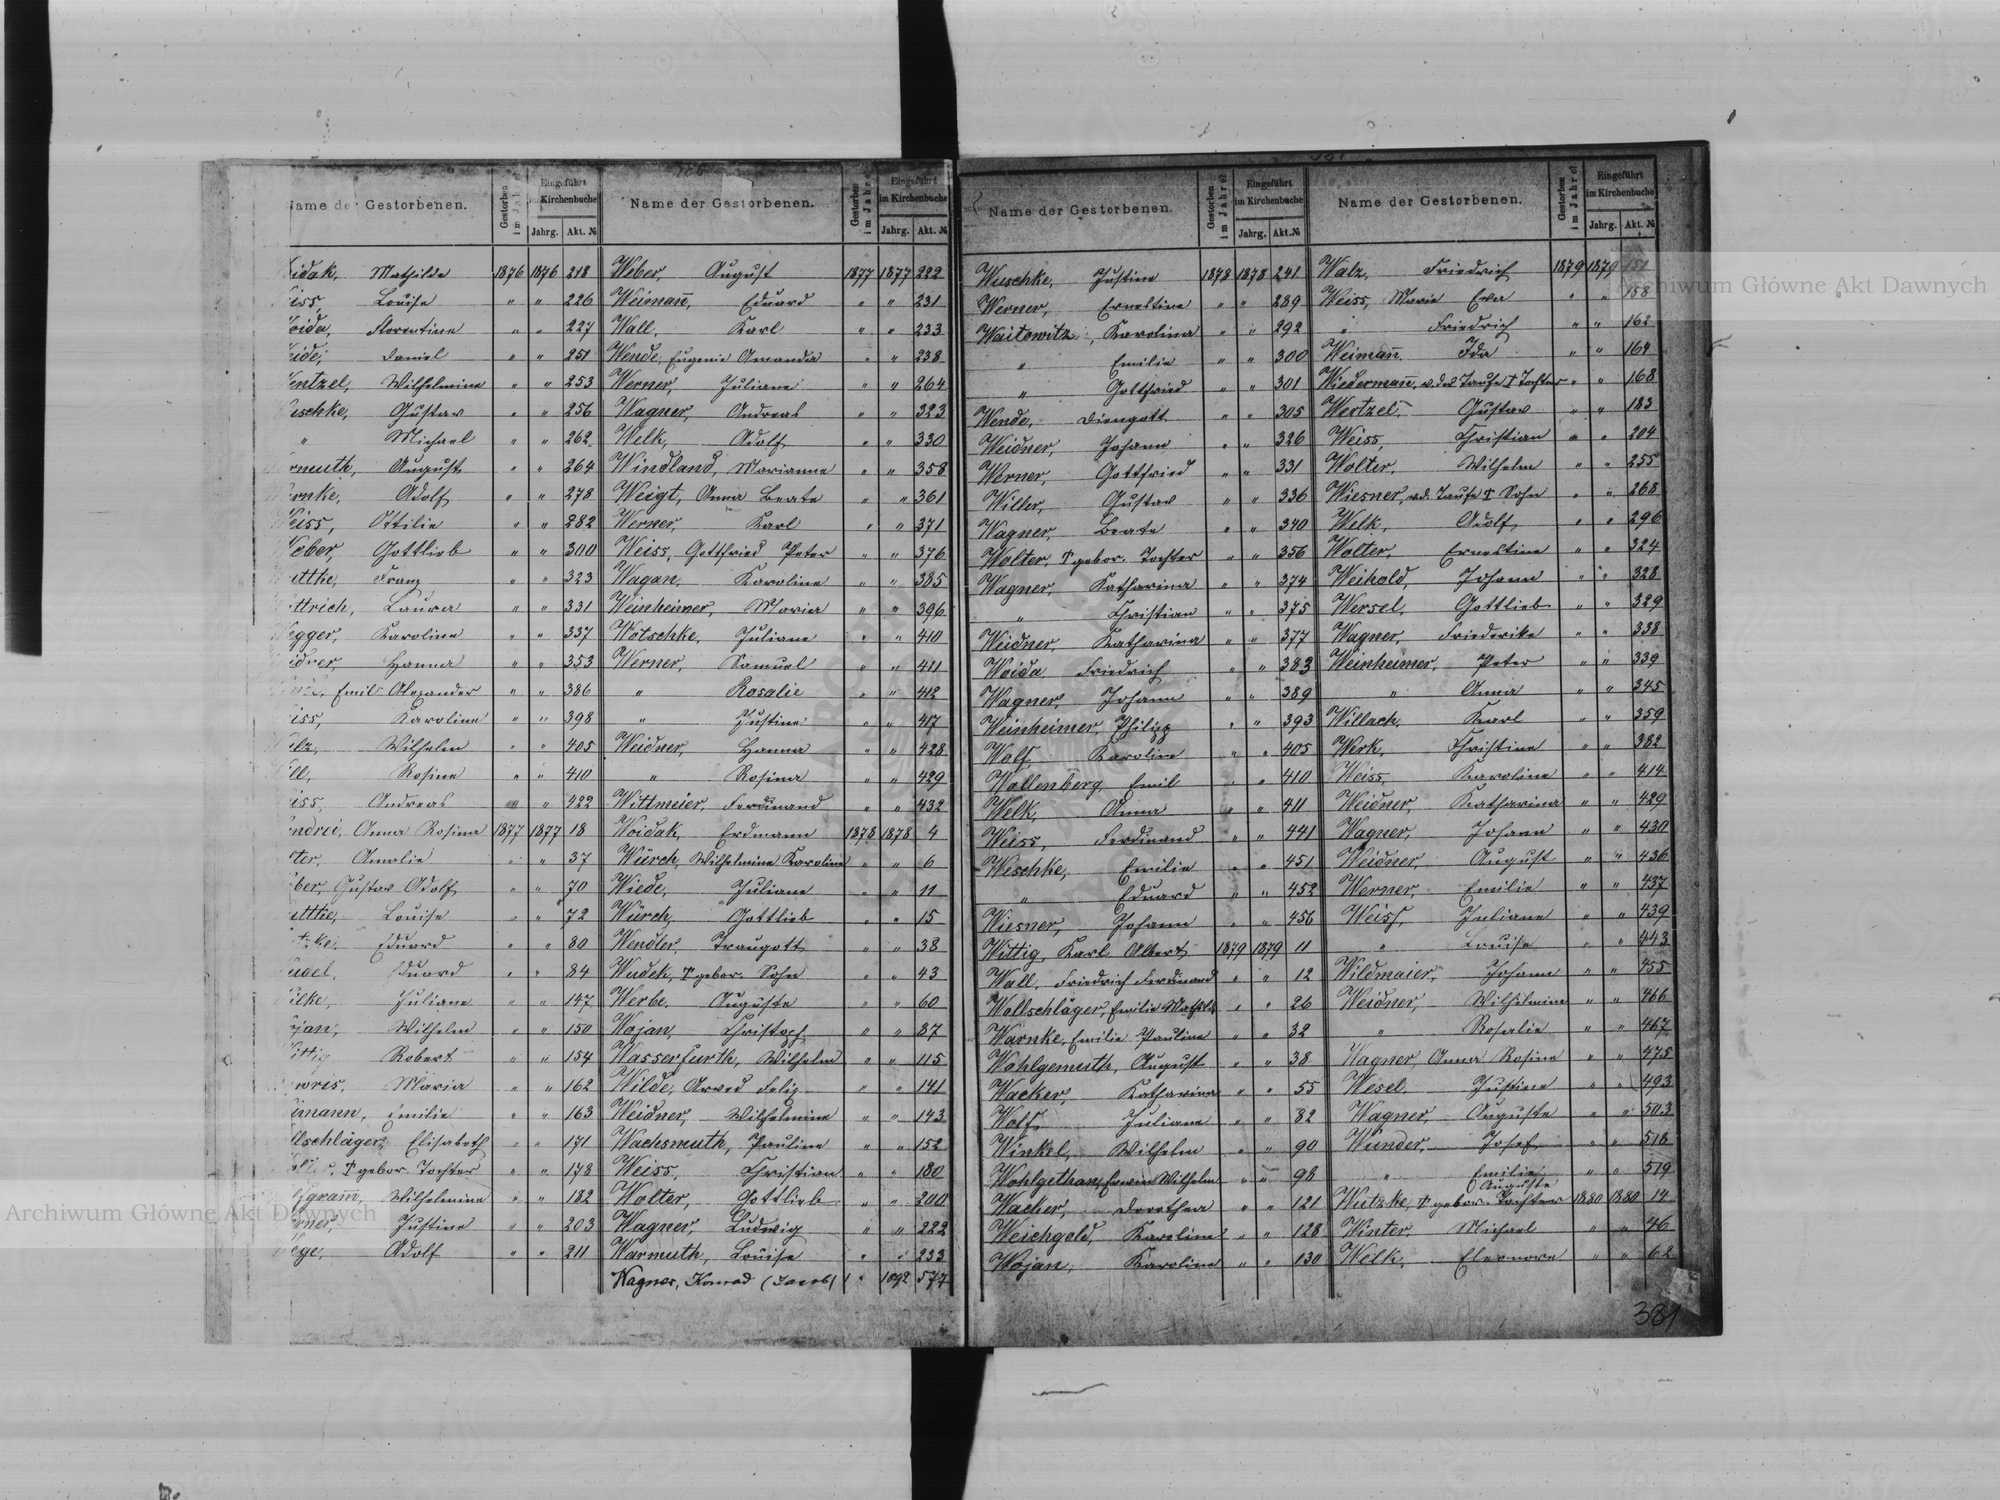 Name der Gestorbenen.
Gestorben im Jahre
Eingeführt im Kirchenbuche
Jahrg. Akt. №
idak, Mathilde 1876 1876 218
iss, Louise " " 226
oida, Florentine " " 227
eide, Daniel " " 251
entzel, Wilhelmine " " 253
eschke, Gustav " " 256
" Michael " " 262
rmuth, August " " 264
rnke, Adolf " " 278
Weiss, Ottilie " " 282
Weber, Gottlieb " " 300
uttke, Franz " " 323
ttrich, Laura " " 331
Wegger, Karoline " " 337
idner, Hanna " " 353
Emil Alexander " " 386
iss, Karoline " " 398
lz, Wilhelm " " 405
ill, Rosine " " 410
iss, Andreas " " 422
endrei, Anna Rosina 1877 1877 18
ter, Amalie " " 37
ber, Gustav Adolf " " 70
uttke, Louise " " 72
ke, Eduard " " 80
udel, Eduard " " 84
ilke, Juliane " " 147
ojan, Wilhelm " " 150
ittig, Robert " " 154
woris, Maria " " 162
imann, Emilie " " 163
llschläger, Elisabeth " " 171
† gebor. Tochter " " 178
gram̄, Wilhelmine " " 182
erner, Justine " " 203
ege, Adolf " " 211
Name der Gestorbenen.
Gestorben im Jahre
Eingeführt im Kirchenbuche
Jahrg. Akt. №
Weber, August 1877 1877 222
Weiman̄, Eduard " " 231
Wall, Karl " " 233
Wende, Eugenie Amanda " " 238
Werner, Juliane " " 264
Wagner, Andreas " " 323
Welk, Adolf " " 330
Windland, Marianne " " 358
Weigt, Anna Beate " " 361
Werner, Karl " " 371
Weiss, Gottfried Peter " " 376
Wagan, Karoline " " 385
Weinheimer, Maria " " 396
Wotschke, Juliane " " 410
Werner, Samuel " " 411
" Rosalie " " 412
" Justine " " 417
Weidner, Hanna " " 428
" Rosina " " 429
Wittmeier, Ferdinand " " 432
Woidak, Erdmann 1878 1878 4
Würch, Wilhelmine Karoline " " 6
Wiede, Juliane " " 11
Würch, Gottlieb " " 15
Wendler, Traugott " " 38
Wudek, † gebor. Sohn " " 43
Werbe, Auguste " " 60
Wojan, Christoph " " 87
Wasserfurth, Wilhelm " " 115
Wilde, Arved Felix " " 141
Weidner, Wilhelmine " " 143
Wachsmuth, Pauline " " 152
Weiss, Christian " " 180
Wolter, Gottlieb " " 200
Wagner, Ludwig " " 222
Warmuth, Louise " " 233
Wagner, Konrad (Jacob) 1892 577
Name der Gestorbenen.
Gestorben im Jahre
Eingeführt im Kirchenbuche
Jahrg. Akt. №
Weschke, Justine 1878 1878 241
Werner, Ernestine " " 289
Waitowitz, Karolina " " 292
" Emilie " " 300
" Gottfried " " 301
Wende, Diengott " " 305
Weidner, Johann " " 326
Werner, Gottfried " " 331
Willer, Gustav " " 336
Wagner, Beate " " 340
Wolter, † gebor. Tochter " " 356
Wagner, Katharina " " 374
" Christian " " 375
Weidner, Katharina " " 377
Woida Friedrich " " 383
Wagner, Johann " " 389
Weinheimer, Philipp " " 393
Wolf, Karoline " " 405
Wollenberg, Emil " " 410
Welk, Anna " " 411
Weiss, Ferdinand " " 441
Weschke, Emilie " " 451
" Eduard " " 452
Wiesner, Johann " " 456
Wittig, Karl Albert 1879 1879 11
Wall, Friedrich Ferdinand " " 12
Wollschläger, Emilie Mathilde " " 26
Warnke, Emilie Pauline " " 32
Wohlgemuth, August " " 38
Wacker, Katharina " " 55
Wolf, Juliane " " 82
Winkel, Wilhelm " " 90
Wohlgethan, Erwin Wilhelm " " 98
Wacker, Dorothea " " 121
Weichgold, Karoline " " 128
Wojan, Karoline " " 130
Name der Gestorbenen.
Gestorben im Jahre
Eingeführt im Kirchenbuche
Jahrg. Akt. №
Walz, Friedrich 1879 1879 151
Weiss, Maria Eva " " 158
" Friedrich " " 162
Weiman̄, Ida " " 164
Wiederman̄, v. d. Taufe † Tochter " " 168
Wertzel, Gustav " " 183
Weiss, Christian " " 204
Wolter, Wilhelm " " 255
Wiesner, v. d. Taufe † Sohn " " 268
Welk, Adolf " " 296
Wolter, Ernestine " " 324
Weihold Johann " " 328
Wersel, Gottlieb " " 329
Wagner, Friederike " " 338
Weinheimer, Peter " " 339
" Anna " " 345
Willach, Karl " " 359
Werk, Christine " " 382
Weiss, Karoline " " 414
Weidner, Katharina " " 429
Wagner, Johann " " 430
Weidner, August " " 436
Werner, Emilie " " 437
Weiss, Juliane " " 439
" Louise " " 443
Wildmaier, Johann " " 455
Weidner, Wilhelmine " " 466
" Rosalie " " 467
Wagner, Anna Rosine " " 475
Wesel, Justine " " 493
Wagner, Auguste " " 503
Wunder, Josef " " 518
" Emilie Auguste " " 519
Wutzke, † gebor. Tochter 1880 1880 14
Winter, Michael " " 46
Welk, Eleonore " " 62
381
Archiwum Główne Akt Dawnych
Archiwum Główne Akt Dawnych